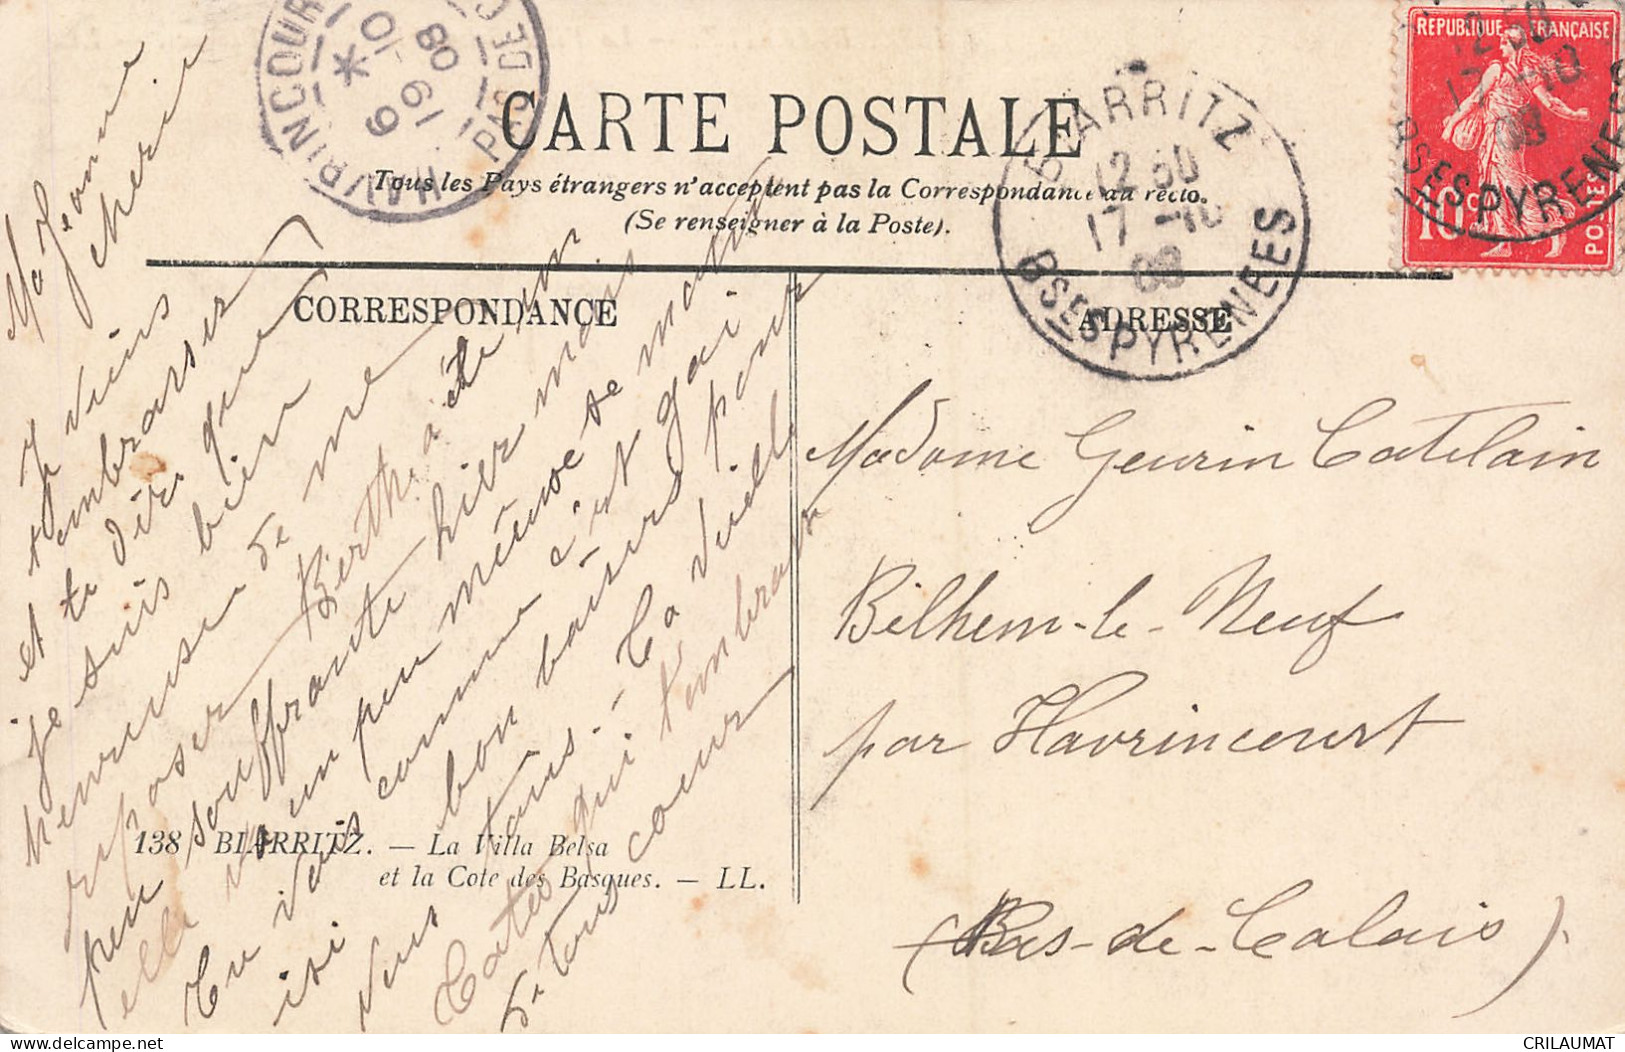 CARTE POSTALE
Tous les Pays étrangers n'acceptent pas la Correspondance au recto.
(Se renseigner à la Poste).
CORRESPONDANCE
ADRESSE
HAVRINCOURT
PAS DE C
6
19-10
08
BIARRITZ
12 50
17-10
08
BSES PYRENEES
REPUBLIQUE FRANÇAISE
10c
POSTES
12 50
17-10
08
BSES PYRENEES
Ma Jeanne
cherie
Je viens
t'embrasser
et te dire que
je suis bien
heureuse de me
reposer Berthe a été un
peu souffrante hier mais
elle va un peu mieux se matin
Tu vois comme c'est gai
ici bon baisers pour
vous tous. - Ta vieille
qui t'embrasse
de tous coeur
Madame Geurin Catelain
Bilhem-le-Neuf
par Havrincourt
(Pas-de-Calais).
138 BIARRITZ. — La Villa Belsa
et la Cote des Basques. — LL.
CRILAUMAT